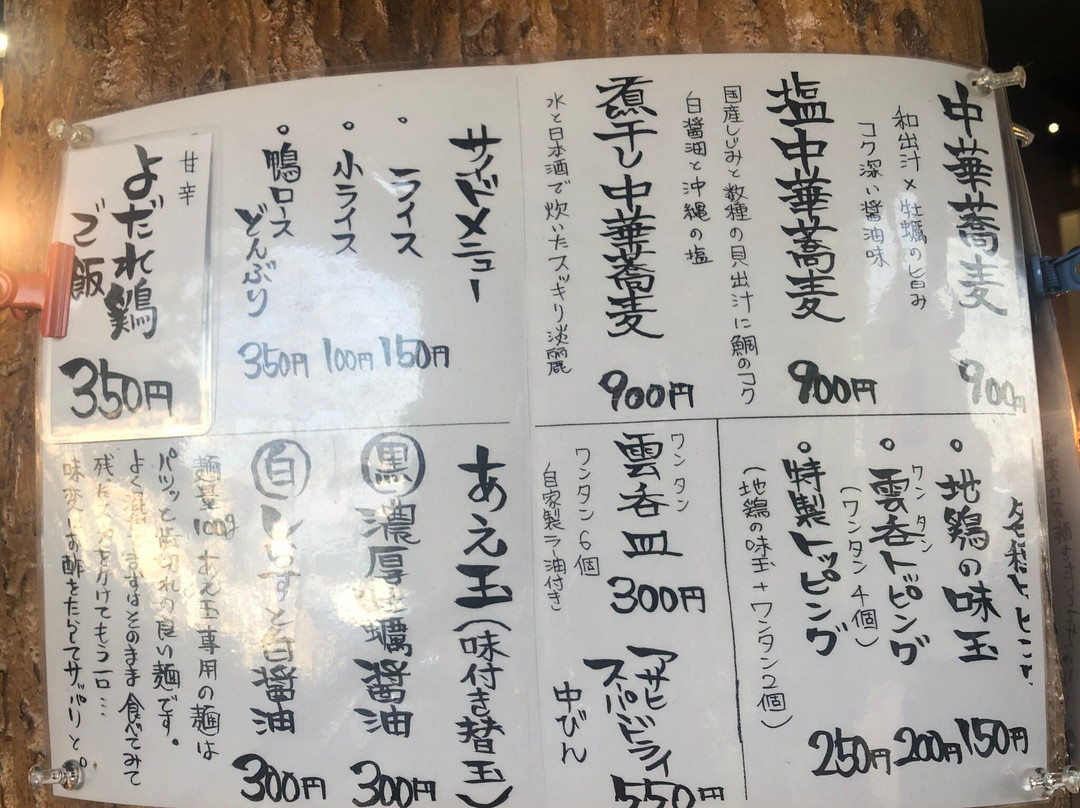 中華蕎麦
和出汁×牡蠣の旨み
コク深い醤油味
900円
塩中華蕎麦
国産しじみと数種の貝出汁に鯛のコク
白醤油と沖縄の塩
900円
煮干し中華蕎麦
水と日本酒で炊いたスッキリ淡麗
900円
サイドメニュー
・ライス
150円
・小ライス
100円
・鴨ロースどんぶり
350円
甘辛
よだれ鶏
ご飯
350円
・地鶏の味玉
150円
・雲呑トッピング
ワンタン
(ワンタン4個)
200円
・特製トッピング
(地鶏の味玉+ワンタン2個)
250円
雲呑皿
ワンタン
ワンタン6個
自家製ラー油付き
300円
アサヒ
スーパードライ
中びん
550円
あえ玉(味付き替玉)
黒 濃厚牡蠣醤油
300円
白 しらすと白醤油
300円
麺量100g あえ玉専用の麺は
パツッと歯切れの良い麺です。
よく混ぜ まずはそのまま食べてみて
残ったスープをかけてもう一口…
味変にお酢をたらしてサッパリと。